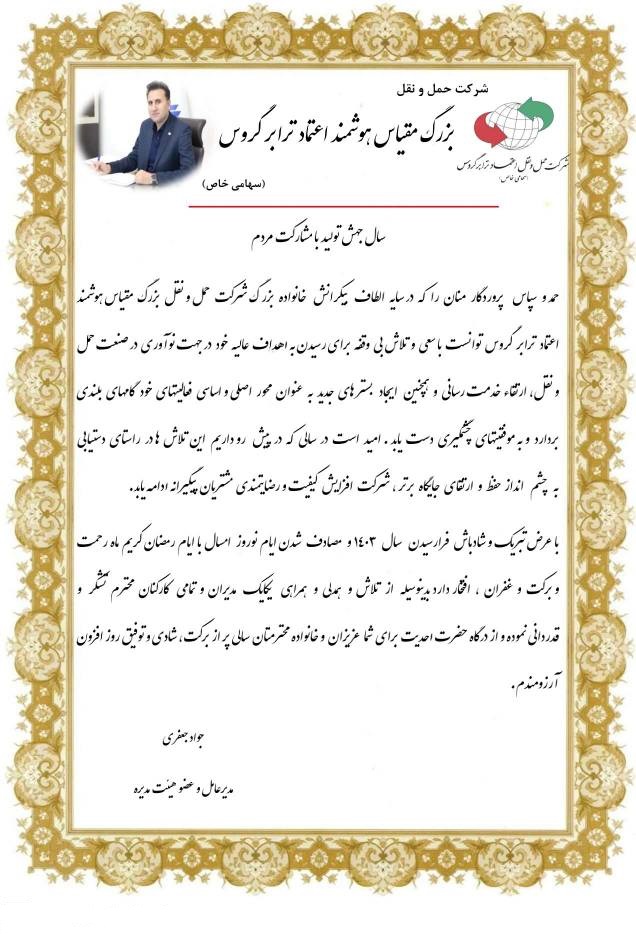 شرکت حمل و نقل
بزرگ مقیاس هوشمند اعتماد ترابر گروس
(سهامی خاص)
شرکت حمل و نقل اعتماد ترابر گروس
(سهامی خاص)
سال جهش تولید با مشارکت مردم
حمد و سپاس پروردگار منان را که در سایه الطاف بیکرانش خانواده بزرگ شرکت حمل و نقل بزرگ مقیاس هوشمند
اعتماد ترابر گروس توانست با سعی و تلاش بی وقفه برای رسیدن به اهداف عالیه خود در جهت نوآوری در صنعت حمل
و نقل، ارتقاء خدمت رسانی و همچنین ایجاد بسترهای جدید به عنوان محور اصلی و اساسی فعالیتهای خود گامهای بلندی
بردارد و به موفقیتهای چشمگیری دست یابد . امید است در سالی که در پیش رو داریم این تلاش ها در راستای دستیابی
به چشم انداز حفظ و ارتقای جایگاه برتر ، شرکت افزایش کیفیت و رضایتمندی مشتریان پیگیرانه ادامه یابد.
با عرض تبریک و شادباش فرارسیدن سال ۱۴۰۳ و مصادف شدن ایام نوروز امسال با ایام رمضان کریم ماه رحمت
و برکت و غفران ، افتخار دارد بدینوسیله از تلاش و همدلی و همراهی یکایک مدیران و تمامی کارکنان محترم تشکر و
قدردانی نموده و از درگاه حضرت احدیت برای شما عزیزان و خانواده محترمتان سالی پر از برکت، شادی و توفیق روز افزون
آرزومندم .
جواد جعفری
مدیرعامل و عضو هیئت مدیره